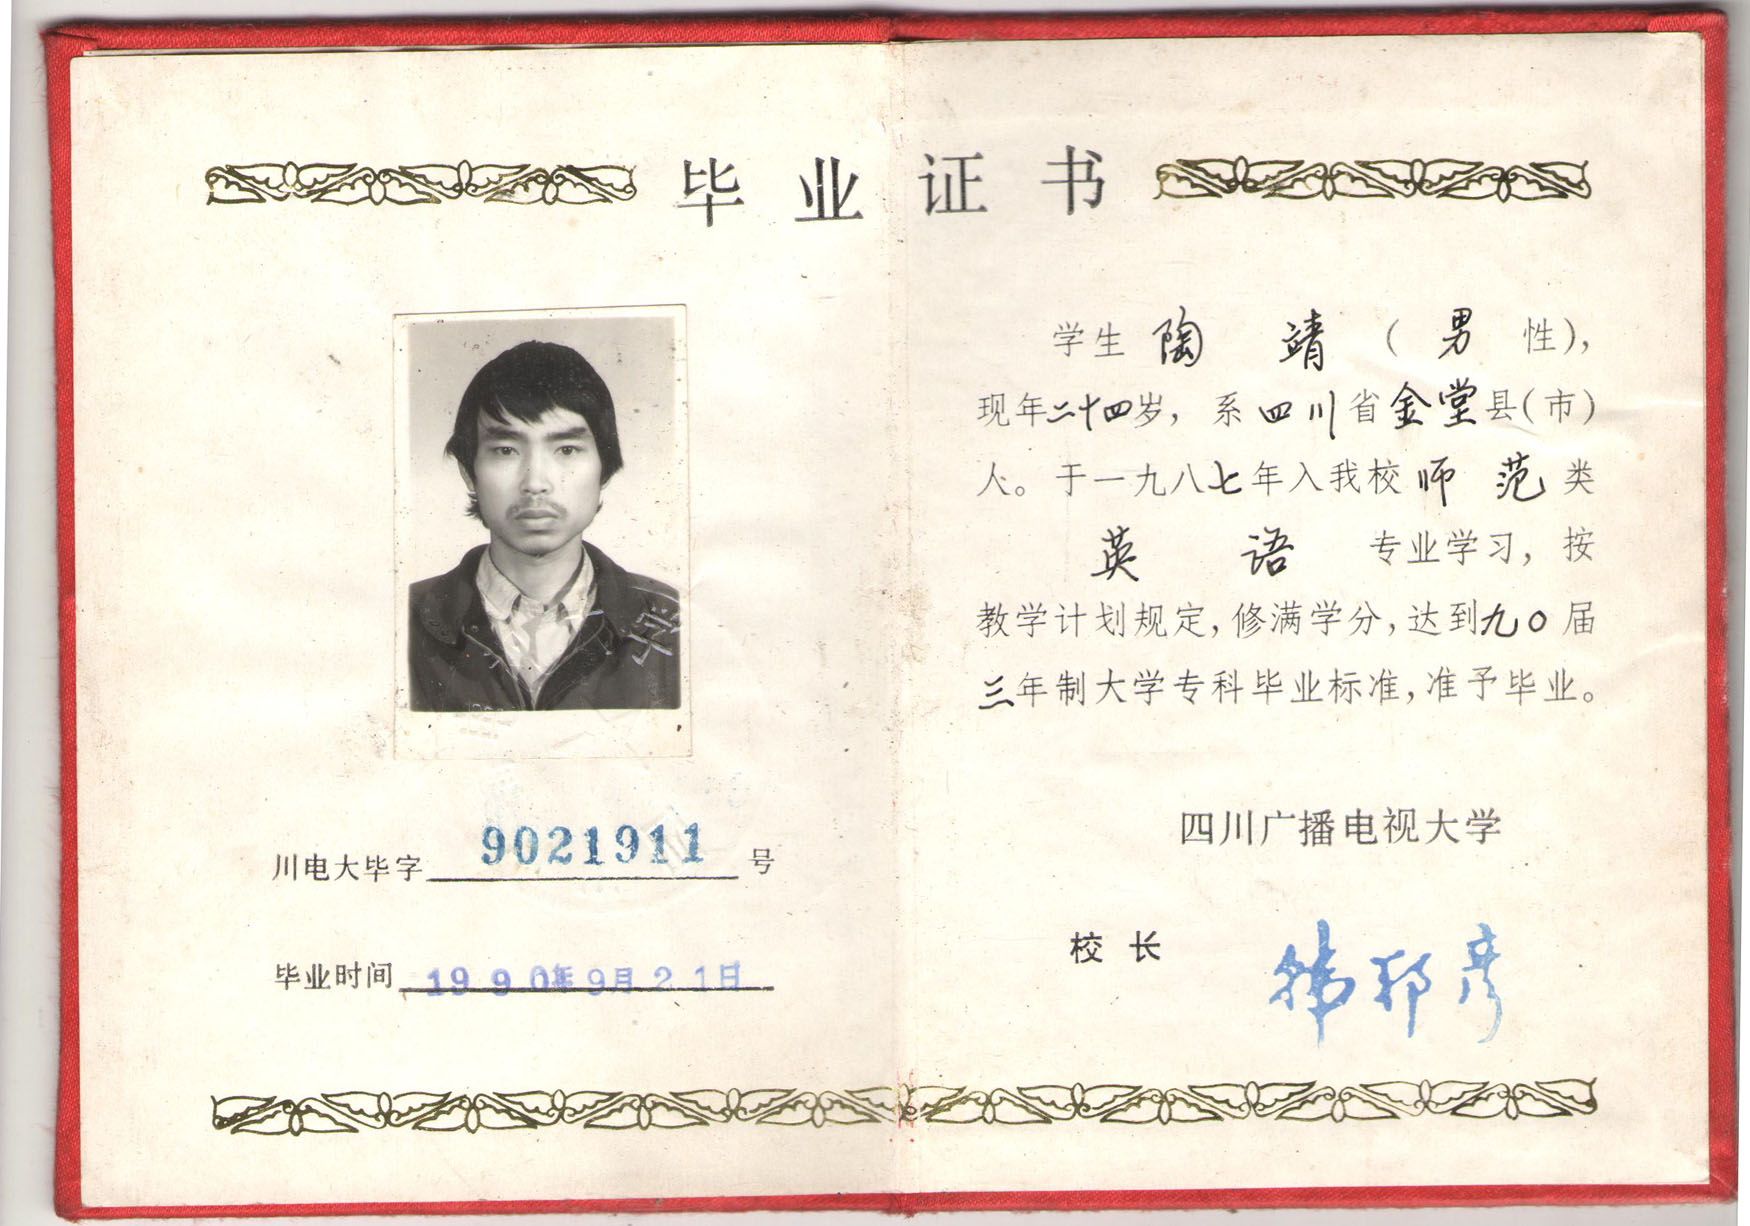 毕业证书
川电大毕字 9021911 号
毕业时间 1990年9月21日
学生 陶靖（男性），
现年二十四岁，系四川省金堂县（市）
人。于一九八七年入我校师范类
英语专业学习，按
教学计划规定，修满学分，达到九〇届
三年制大学专科毕业标准，准予毕业。
四川广播电视大学
校长 韩邦彦